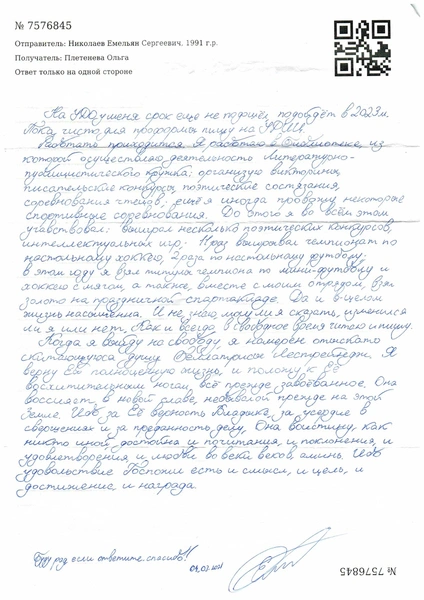 № 7576845
Отправитель: Николаев Емельян Сергеевич. 1991 г.р.
Получатель: Плетенева Ольга
Ответ только на одной стороне
На УДО у меня срок ещё не подошёл, подойдёт в 2023м.
Пока, чисто для проформы пишу на УФИЦ.
Работать приходится. Я работаю в библиотеке, из
которой осуществляю деятельность Литературно-
публицистического кружка; организую викторины,
писательские конкурсы, поэтические состязания,
соревнования чтецов; ещё я иногда провожу некоторые
спортивные соревнования. До этого я во всём этом
участвовал: выиграл несколько поэтических конкурсов,
интеллектуальных игр; раз выигрывал чемпионат по
настольному хоккею, 2 раза по настольному футболу;
в этом году я взял титулы чемпиона по мини-футболу и
хоккею с мячом, а также, вместе с моим отрядом, взял
золото на праздничной спартакиаде. Да и в целом
жизнь насыщенна. И не знаю могу ли я сказать, изменился
ли я или нет. Как и всегда в свободное время читаю и пишу.
Когда я выйду на свободу, я намерен отыскать
скитающуюся душу Беллатрисы Лестрейндж. Я
верну Ей полноценную жизнь, и положу к Её
восхитительным ногам, всё прежде завоёванное. Она
воссияет в новой славе, небывалой прежде на этой
Земле. Ибо за Её верность Владыке, за усердие в
свершениях и за преданность делу, Она воистину, как
никто иной, достойна и почитания, и поклонения, и
удовлетворения, и любви, во веки веков, аминь. Ибо
удовольствие Госпожи есть и смысл, и цель, и
достижение, и награда.
Буду рад если ответите. Спасибо!
№ 7576845